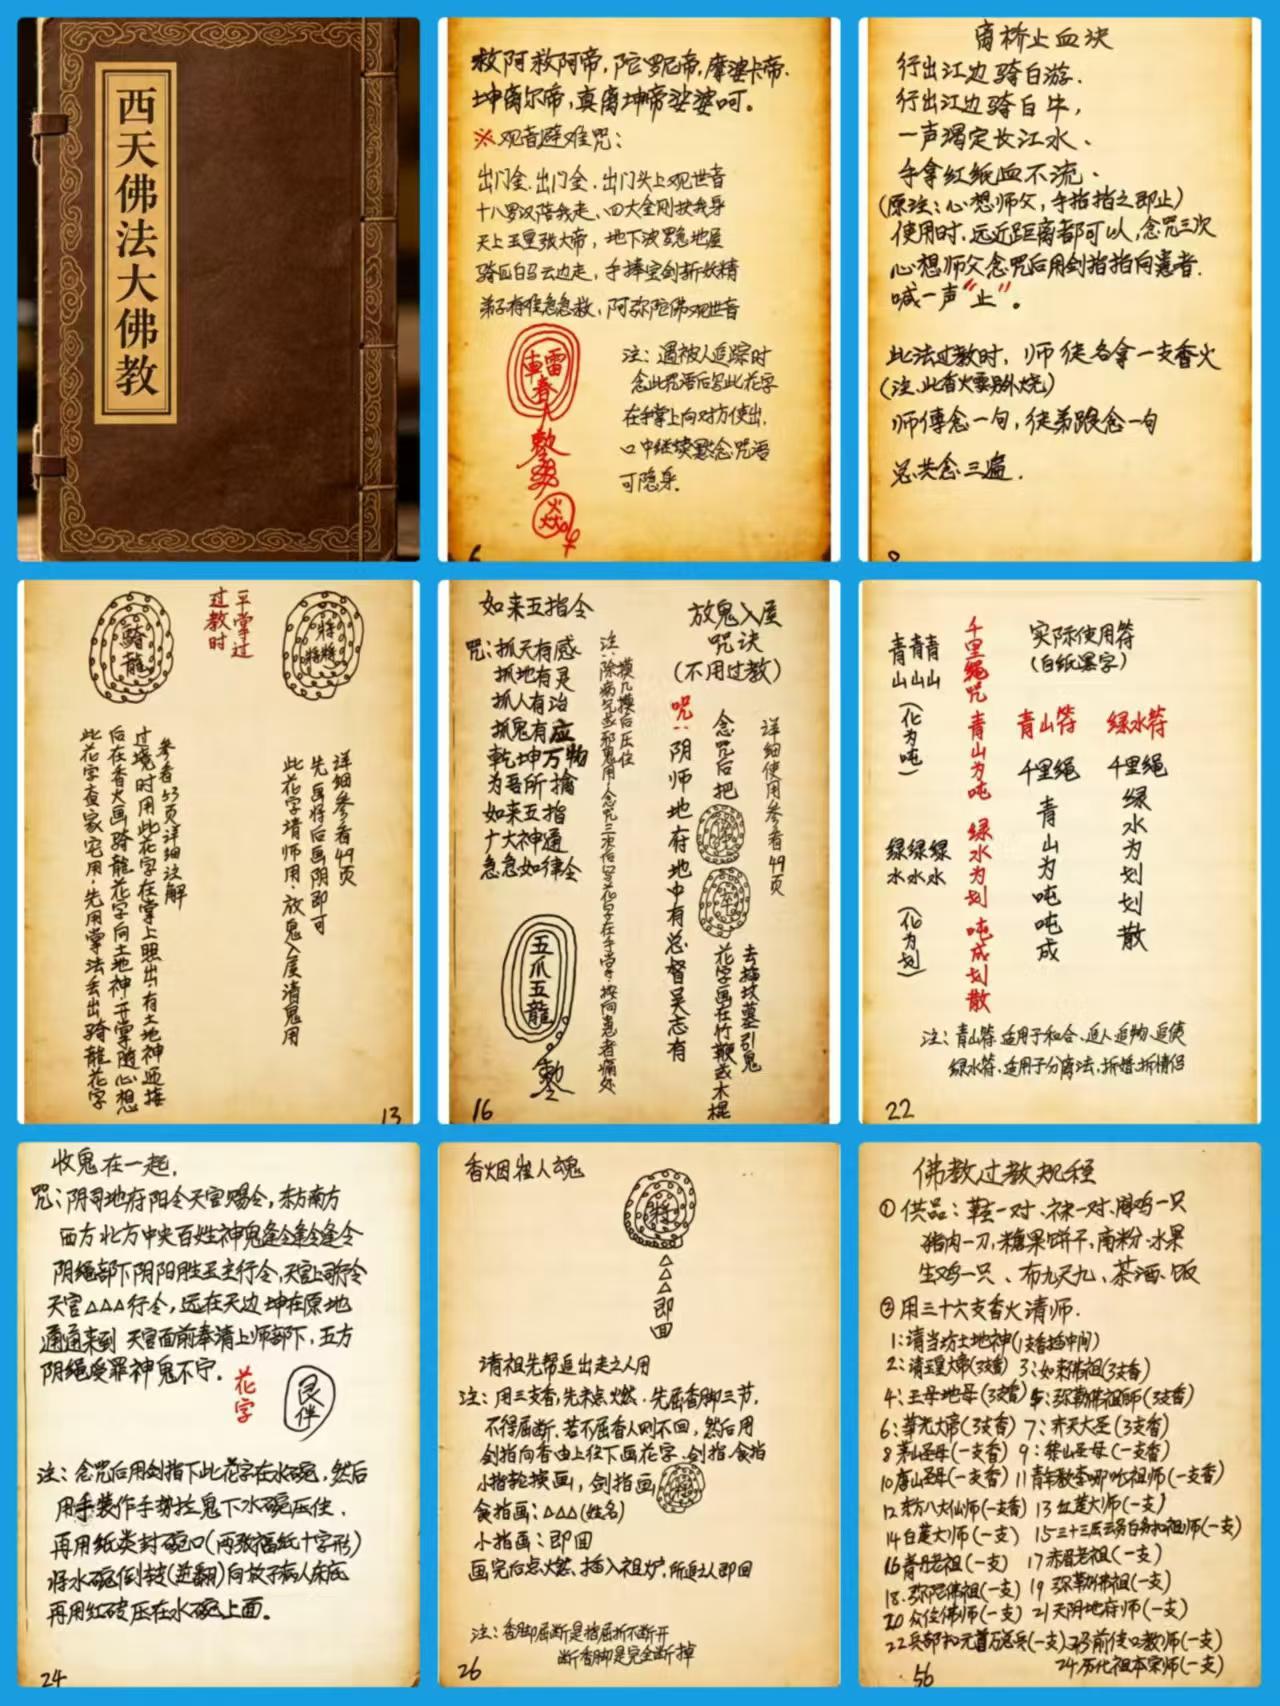 西天佛法大佛教
救阿救阿帝，陀罗尼帝，摩婆卡帝.
坤离尔帝，真离坤帝娑婆呵。
※观音避难咒：
出门全.出门全.出门头上观世音
十八罗汉陪我走、四大金刚扶我身
天上玉皇张大帝，地下波罗急地屋
骑匹白马云边走，手捧宝剑斩妖精
弟子有难急急救，阿弥陀佛观世音
車雷
春
注：遇被人追踪时
念此咒语后写此花字
在手掌上向对方使出.
口中继续默念咒语
可隐身.
6
离桥止血决
行出江边骑白游.
行出江边骑白牛，
一声渴定长江水、
手拿红纸血不流.
(原注：心想师父，手指指之即止)
使用时.远近距离都可以，念咒三次
心想师父念咒后用剑指指向患者.
喊一声“止”。
此法过教时，师徒各拿一支香火
(注、此香火要另外烧)
师傅念一句，徒弟跟念一句
总共念三遍.
8
平掌过
过教时
騎龍
参看53页详细注解
过境时用此花字在掌上照出有土地神迎接
后在香火画骑龍花字向土地神开掌随心想
此花字查家宅用.先用掌法丢出骑龍花字
详细参看49页
先画将后画阴即可
此花字请师用.放鬼入屋清鬼用
13
如来五指令
咒：抓天有感
抓地有灵
抓人有治
抓鬼有应
乾坤万物
为吾所擒
如来五指
十大神通
急急如律令
摸几摸后压住
五爪五龍
放鬼入屋
咒诀
(不用过教)
咒：阴师地府地中有总督吴志有
念咒后把
花字画在竹鞭或木棍
去挿坟墓引鬼
详细使用参看49页
16
青青青
山山山
(化为吨)
绿绿绿
水水水
(化为划)
千里绳咒 青山为吨 绿水为划 吨成划散
实际使用符
(白纸黑字)
青山符
千里绳
青山为吨吨成
绿水符
千里绳
绿水为划划散
注：青山符.适用于和合、追人追物、追债
绿水符.适用于分离法、拆婚.拆情侣
22
收鬼在一起.
咒：阴司地府阳令天官赐令，东方南方
西方北方中央百姓神鬼逢令逢令逢令
阴绳部下阴阳胜五主行令，天官上司行令
天官△△△行令，远在天边坤在原地
通通来到 天官面前奉请上师部下，五方
阴绳受罪神鬼不宁.
花字
艮伴
注：念咒后用剑指下此花字在水碗，然后
用手装作手势拉鬼下水碗压住.
再用纸类封碗口(两张福纸十字形)
将水碗倒转(逆翻)向放于病人床底
再用红砖压在水碗上面.
24
香烟崔人魂
△△△即回
清祖先帮追出走之人用
注：用三支香，先未点燃.先屈香脚三节，
不得屈断.若不屈香人则不回，然后用
剑指向香由上往下画花字.剑指.食指
小指轮换画，剑指画
食指画：△△△(姓名)
小指画：即回
画完后点燃、插入祖炉，所追之人即回
注：香脚屈断是指屈折不断开
断香脚是完全断掉
26
佛教过教规程
①供品：鞋一对、袜一对、阉鸡一只
猪肉一刀，糖果饼干，南粉、水果
生鸡一只、布九天九、茶酒、饭
②用三十六支香火清师.
1:清当坊土地神(1支香插中间)
2:请玉皇大帝(3支香) 3:如来佛祖(3支香)
4:王母地母(3支香) 5:弥勒佛祖师(3支香)
6:華光大帝(3支香) 7:齐天大圣(3支香)
8茅山圣母(一支香) 9:黎山圣母(一支香)
10唐山圣母(一支香) 11青年教李哪吒祖师(一支香)
12东方八大仙师(一支香) 13红莲大师(一支)
14白莲大师(一支) 15三十三层云务白务和祖师(一支)
16青丹老祖(一支) 17赤眉老祖(一支)
18.弥陀佛祖(一支) 19弥勒佛祖(一支)
20众位佛师(一支) 21天阴地府师(一支)
22兵部和元首万总兵(一支)23前传口教师(一支)
24历代祖本宗师(一支)
56